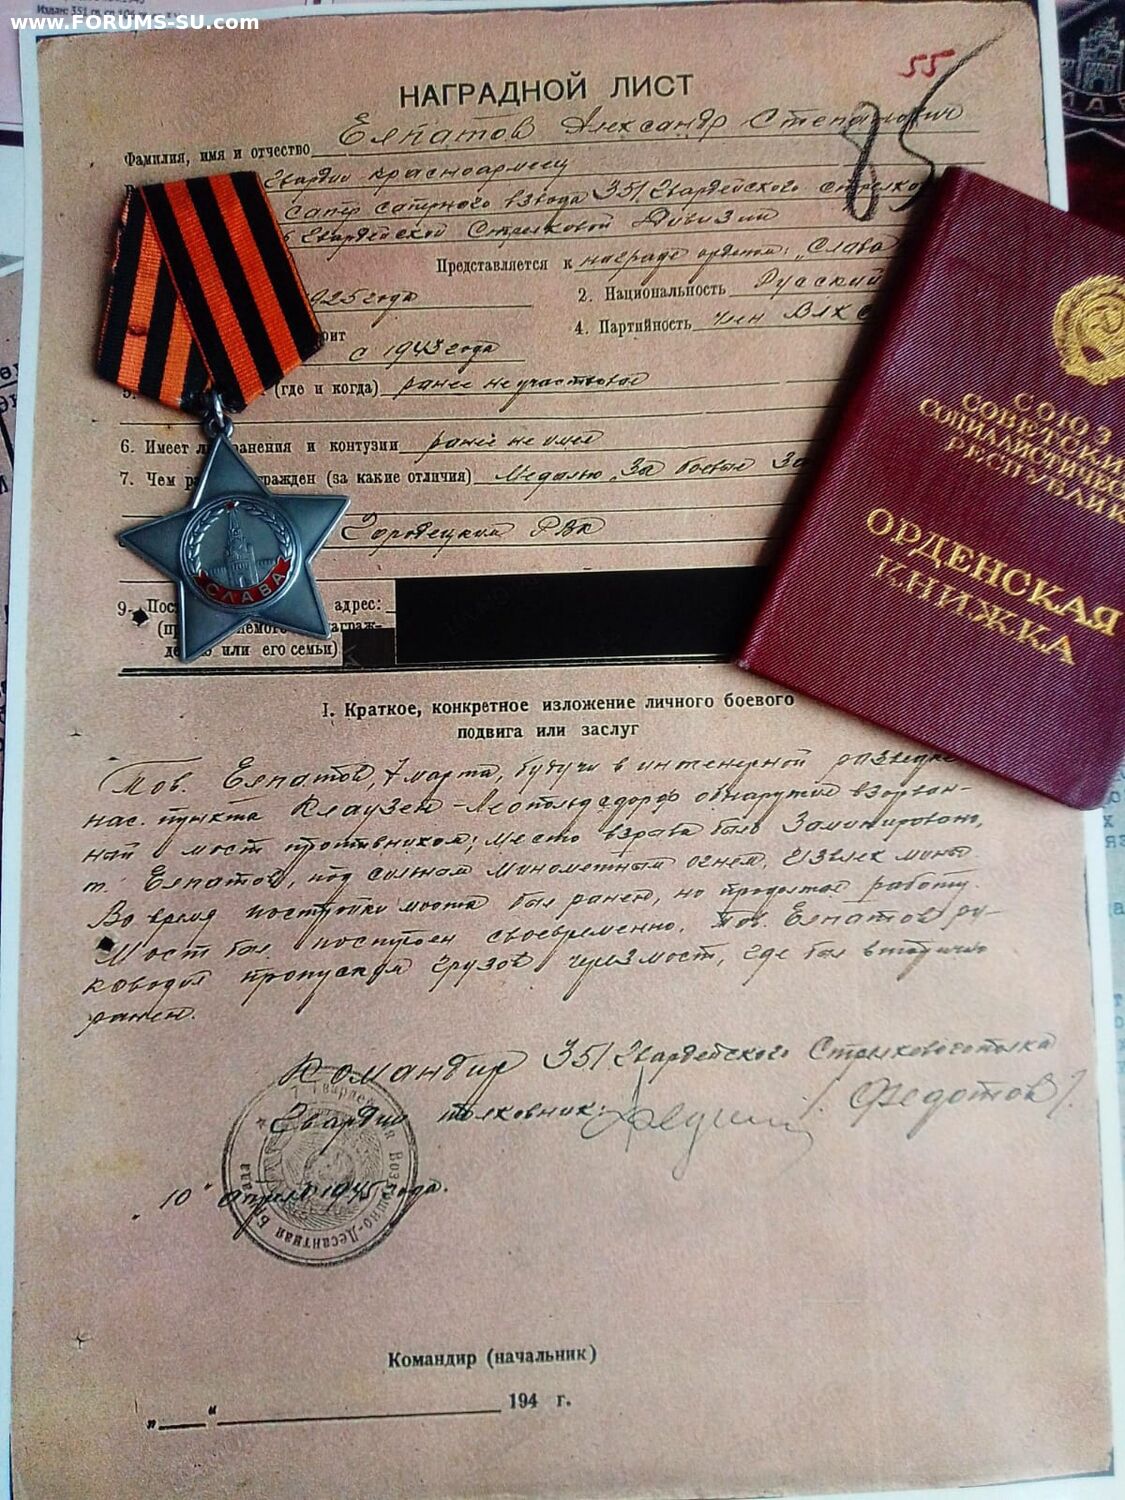 www.FORUMS-SU.com
55
85
НАГРАДНОЙ ЛИСТ
Фамилия, имя и отчество Елпатов Александр Степанович
Гвардии красноармеец
сапер саперного взвода 351 Гвардейского стрелко
Гвардейской Стрелковой Дивизии
Представляется к награде орденом: „Слава
1925 года
2. Национальность Русский
4. Партийность член ВЛКС
с 1943 года
5. (где и когда) ранее не участвовал
6. Имеет ли ранения и контузии ранее не имел
7. Чем ражден (за какие отличия) Медалью „За боевые За
Городецким РВК
9. Пос адрес:
награж-
или его семьи)
I. Краткое, конкретное изложение личного боевого
подвига или заслуг
Тов. Елпатов, 7 марта, будучи в инженерной разведке
нас. пункта Клаузен-Леопольдсдорф обнаружил взорван-
ный мост противником; Место взрыва было Заминировано,
т. Елпатов, под сильным Минометным огнем, Извлек мины.
Во время постройки моста был ранен, но продолжал работу.
Мост был построен своевременно. Тов. Елпатов ру-
ководил пропуском грузов через мост, где был вторично
ранен.
Командир 351 Гвардейского Стрелкового полка
Гвардии полковник: /Федотов/.
Гвардейская Воздушно-Десантная Бригада
„10" Апреля 1945 года.
Командир (начальник)
„ “ 194 г.
СЛАВА
СОЮЗ
СОВЕТСКИ
СОЦИАЛИСТИЧЕС
РЕСПУБЛИК
ОРДЕНСКАЯ
КНИЖКА